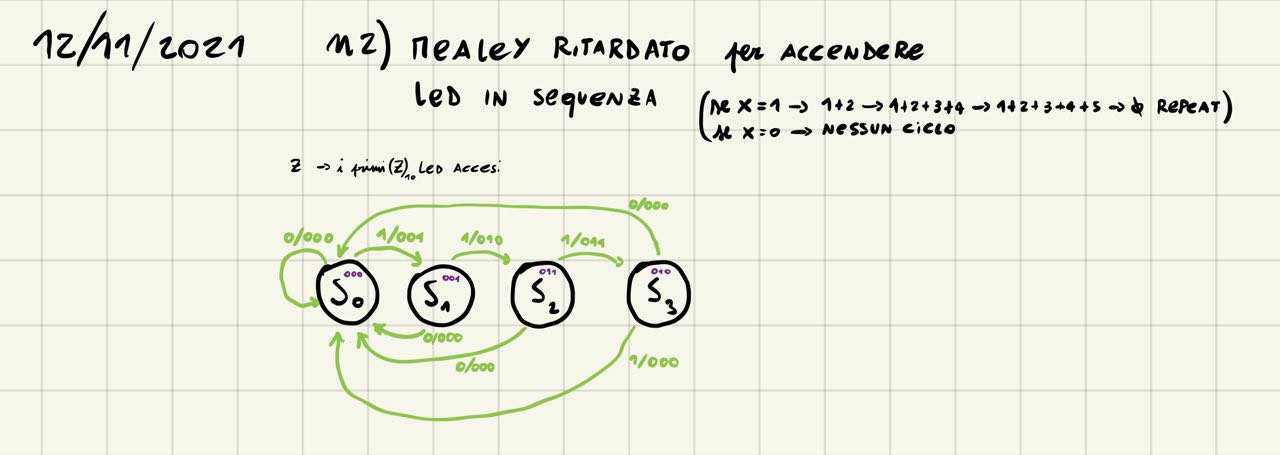 12/11/2021 n2) MEALEY RITARDATO per ACCENDERE
LED IN SEQUENZA
(se X=1 → 1+2 → 1+2+3+4 → 1+2+3+4+5 → REPEAT)
(se X=0 → NESSUN CICLO
Z → i primi (Z)10 LED ACCESi
0/000
0/000 1/001 1/010 1/011
000 001 011 010
S0 S1 S2 S3
0/000
0/000 1/000